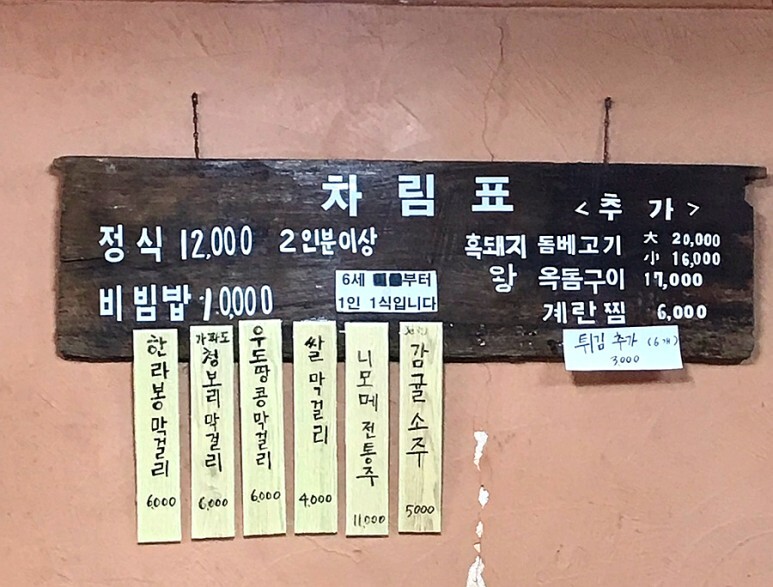 차림표
정식 12,000 2인분이상
비빔밥 10,000
6세 부터
1인 1식입니다
<추가>
흑돼지 돔베고기 大 20,000
小 16,000
왕 옥돔구이 17,000
계란찜 6,000
튀김 추가 (6개)
3000
한라봉막걸리
6,000
가파도
청보리막걸리
6,000
우도땅콩막걸리
6,000
쌀막걸리
4,000
니모메 전통주
11,000
감귤소주
5000